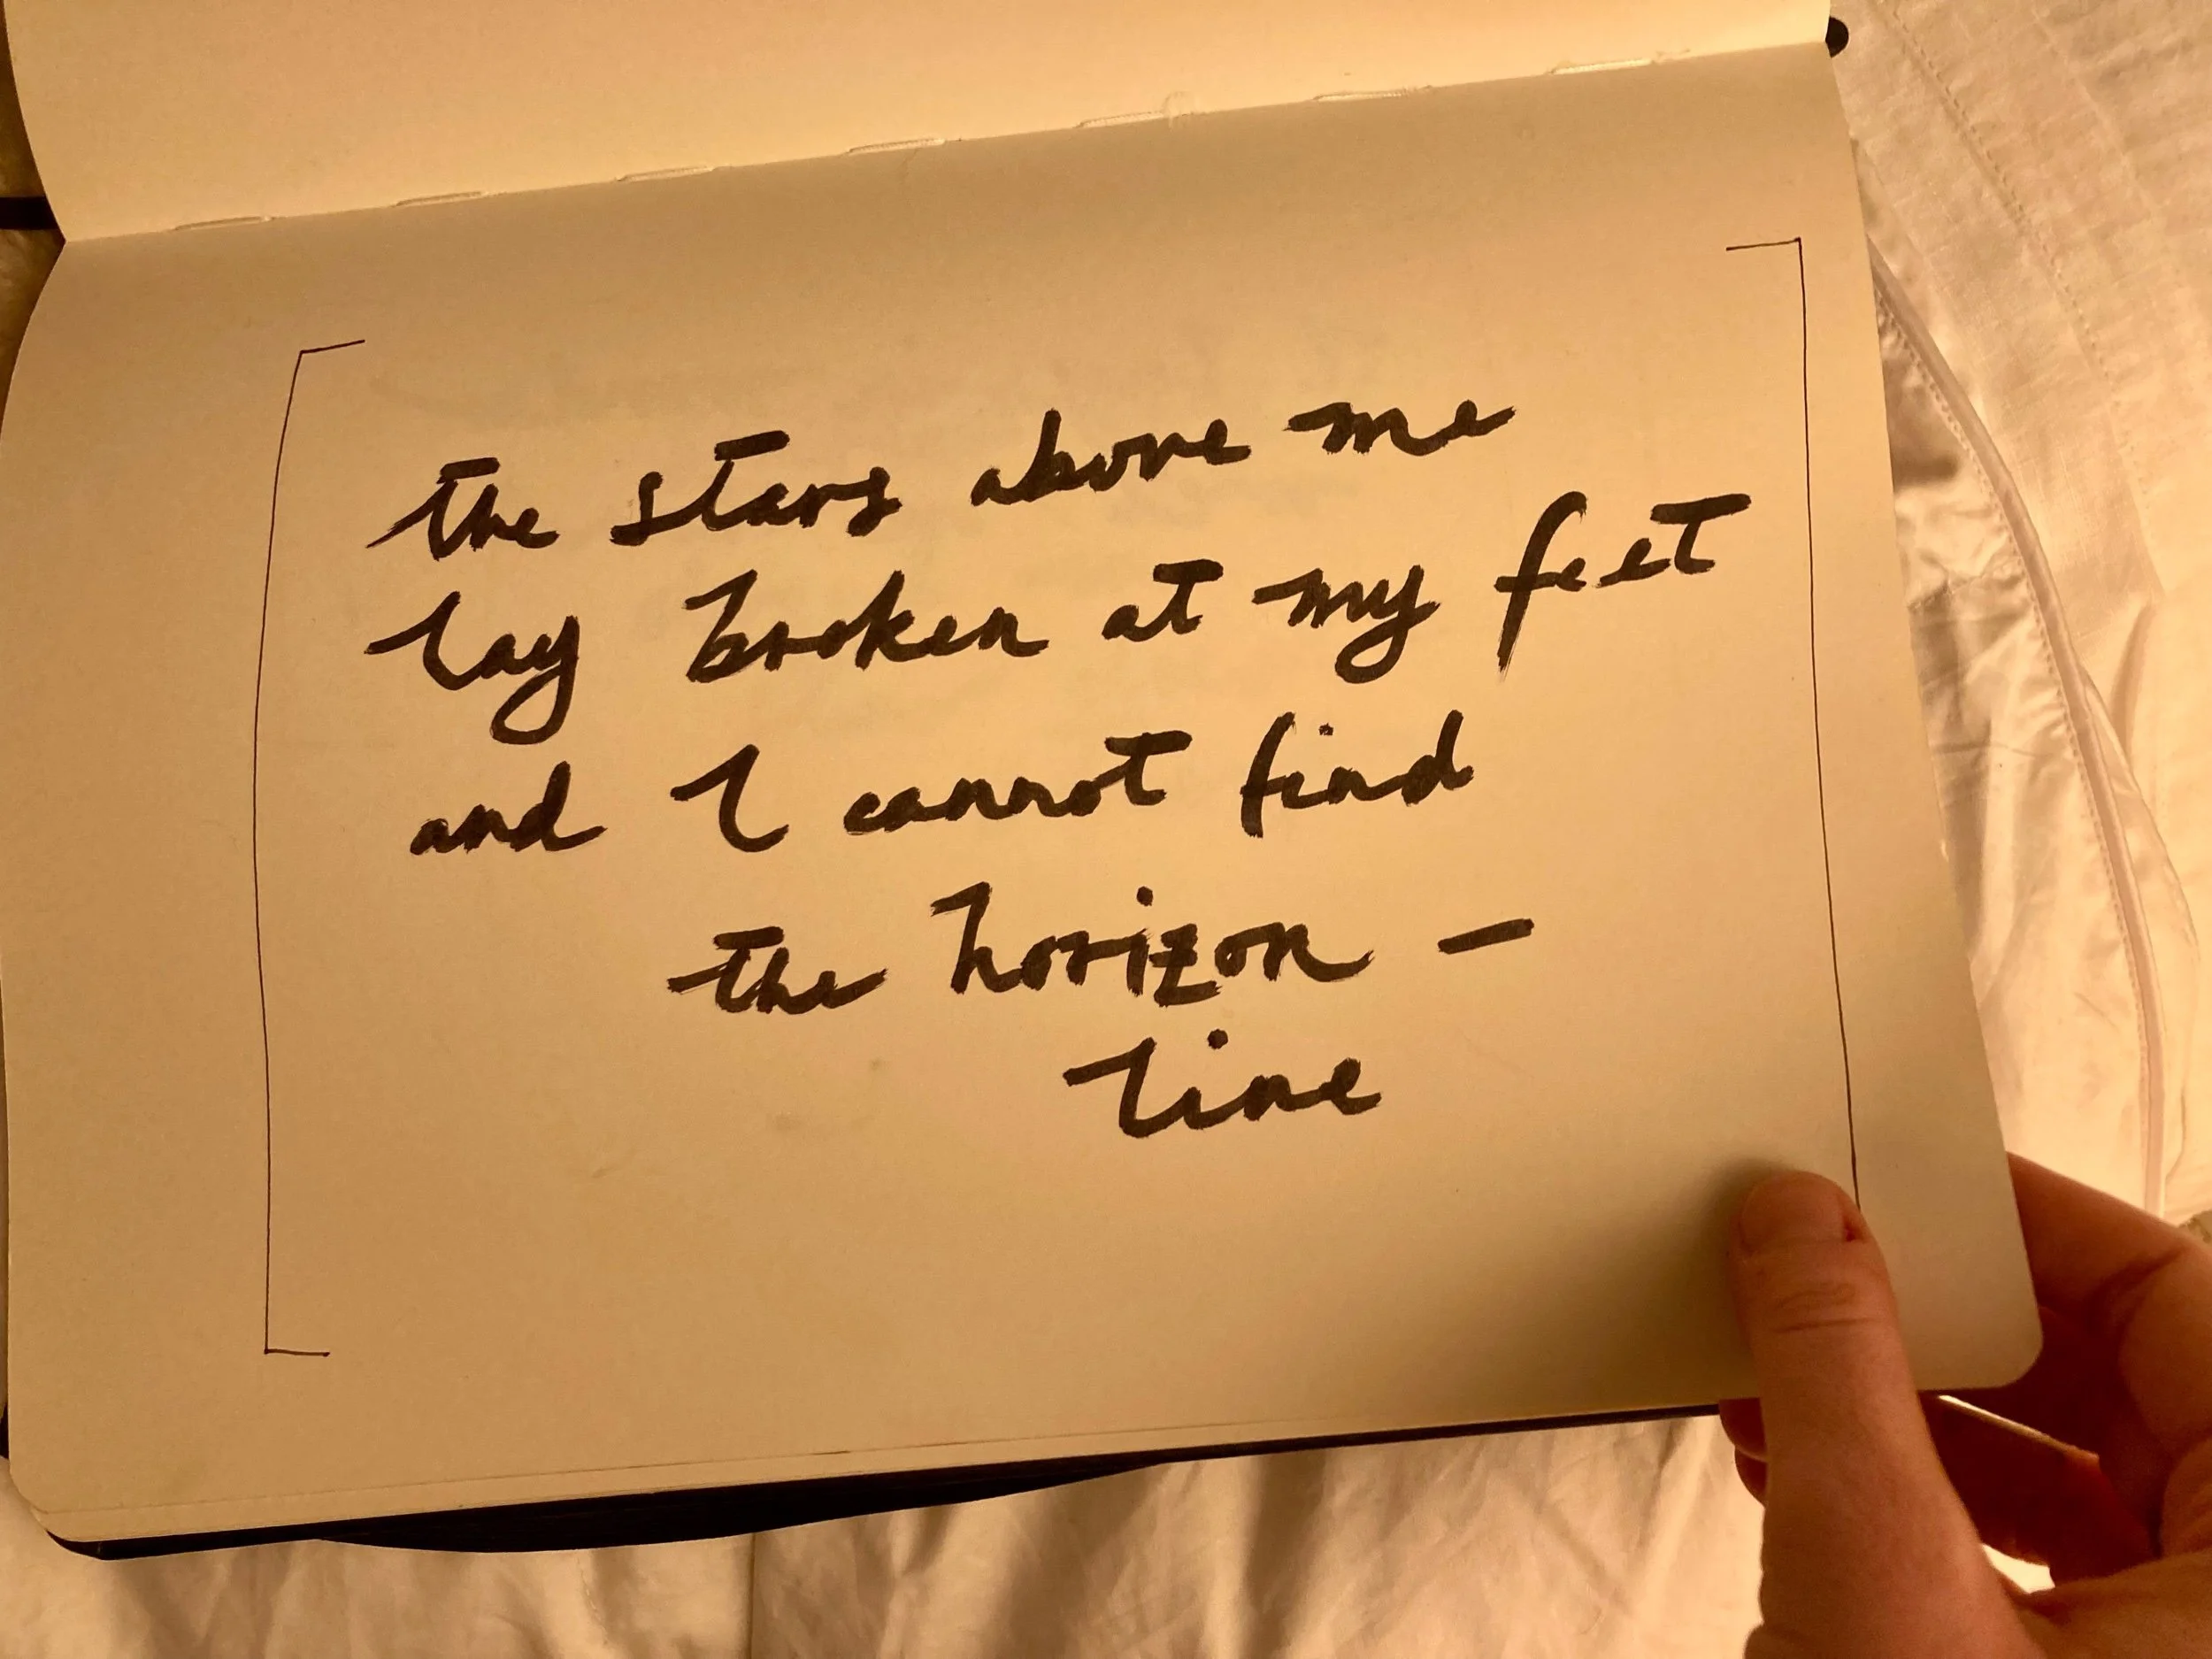 the stars above me
lay broken at my feet
and I cannot find
the horizon –
line